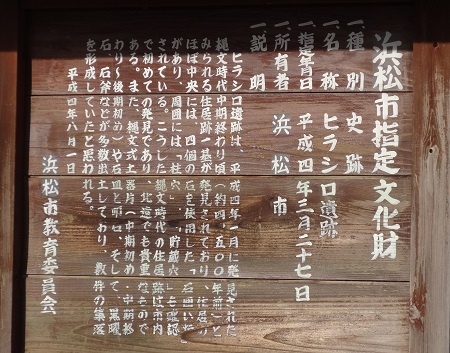 浜松市指定文化財
一種別 史跡
一名称 ヒラシロ遺跡
一指定年月日 平成四年三月二十七日
一所有者 浜松市
一説明
ヒラシロ遺跡は、平成四年一月に発見された
縄文時代中期終わり頃(約四、五〇〇年前)と
みられる住居跡一基が発見されており、住居の
ほぼ中央には、四個の石を使用した「石囲いろ」
があり、周囲には「柱穴」、「貯蔵穴」も確認
されている。こうした縄文時代の住居跡は市内
で初めての発見であり、北遠でも貴重なもので
ある。また、縄文式土器片(中期初め・中期終
わり～後期初め)や石皿と凹石、そして、黒曜
石、石斧などが多数出土しており、数件の集落
を形成していたと思われる。
平成四年八月一日
浜松市教育委員会